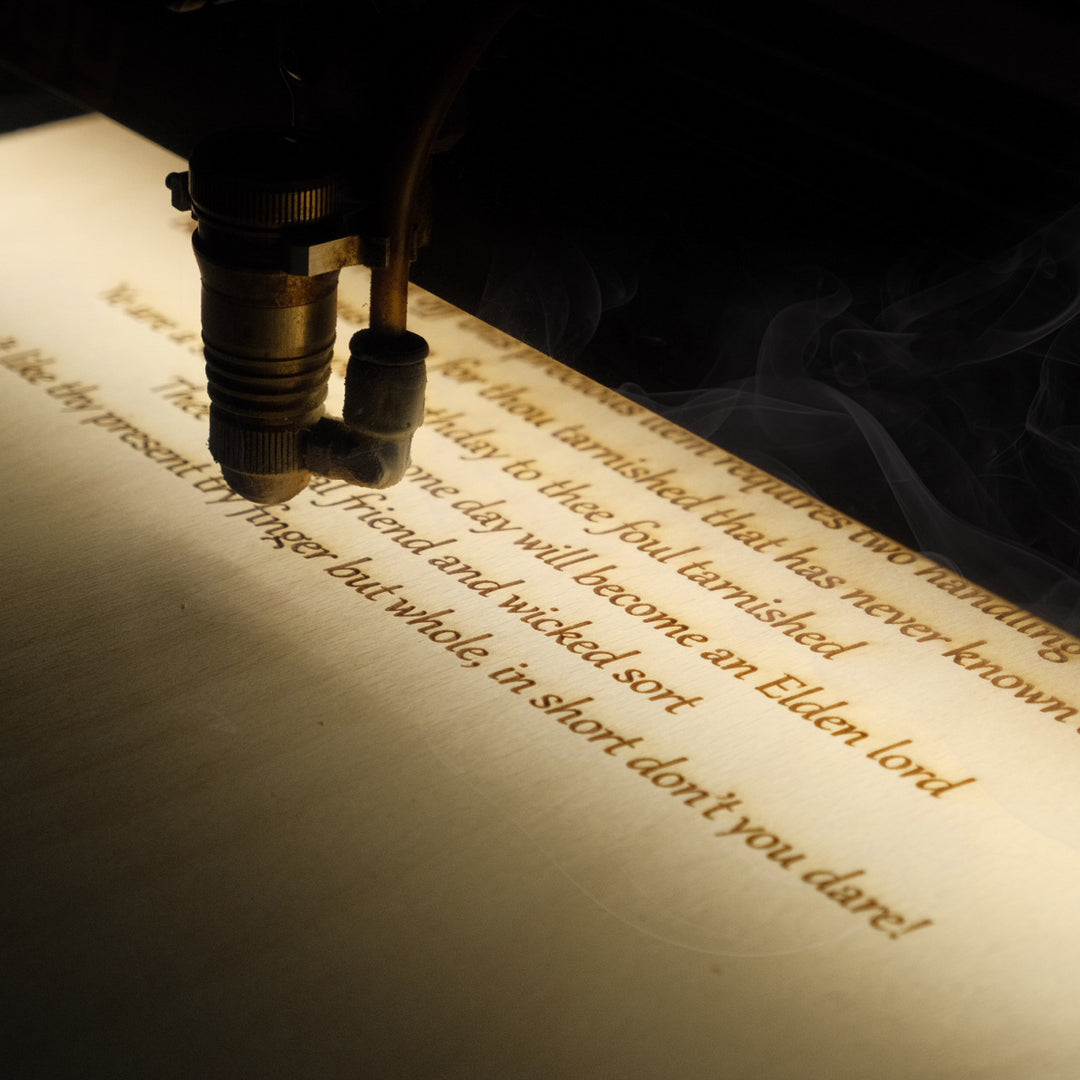 precious item requires two handling
for thou tarnished that has never known
to thee foul tarnished
Ye are one day will become an Elden lord
friend and wicked sort
like thy present thy finger but whole, in short don't you dare!